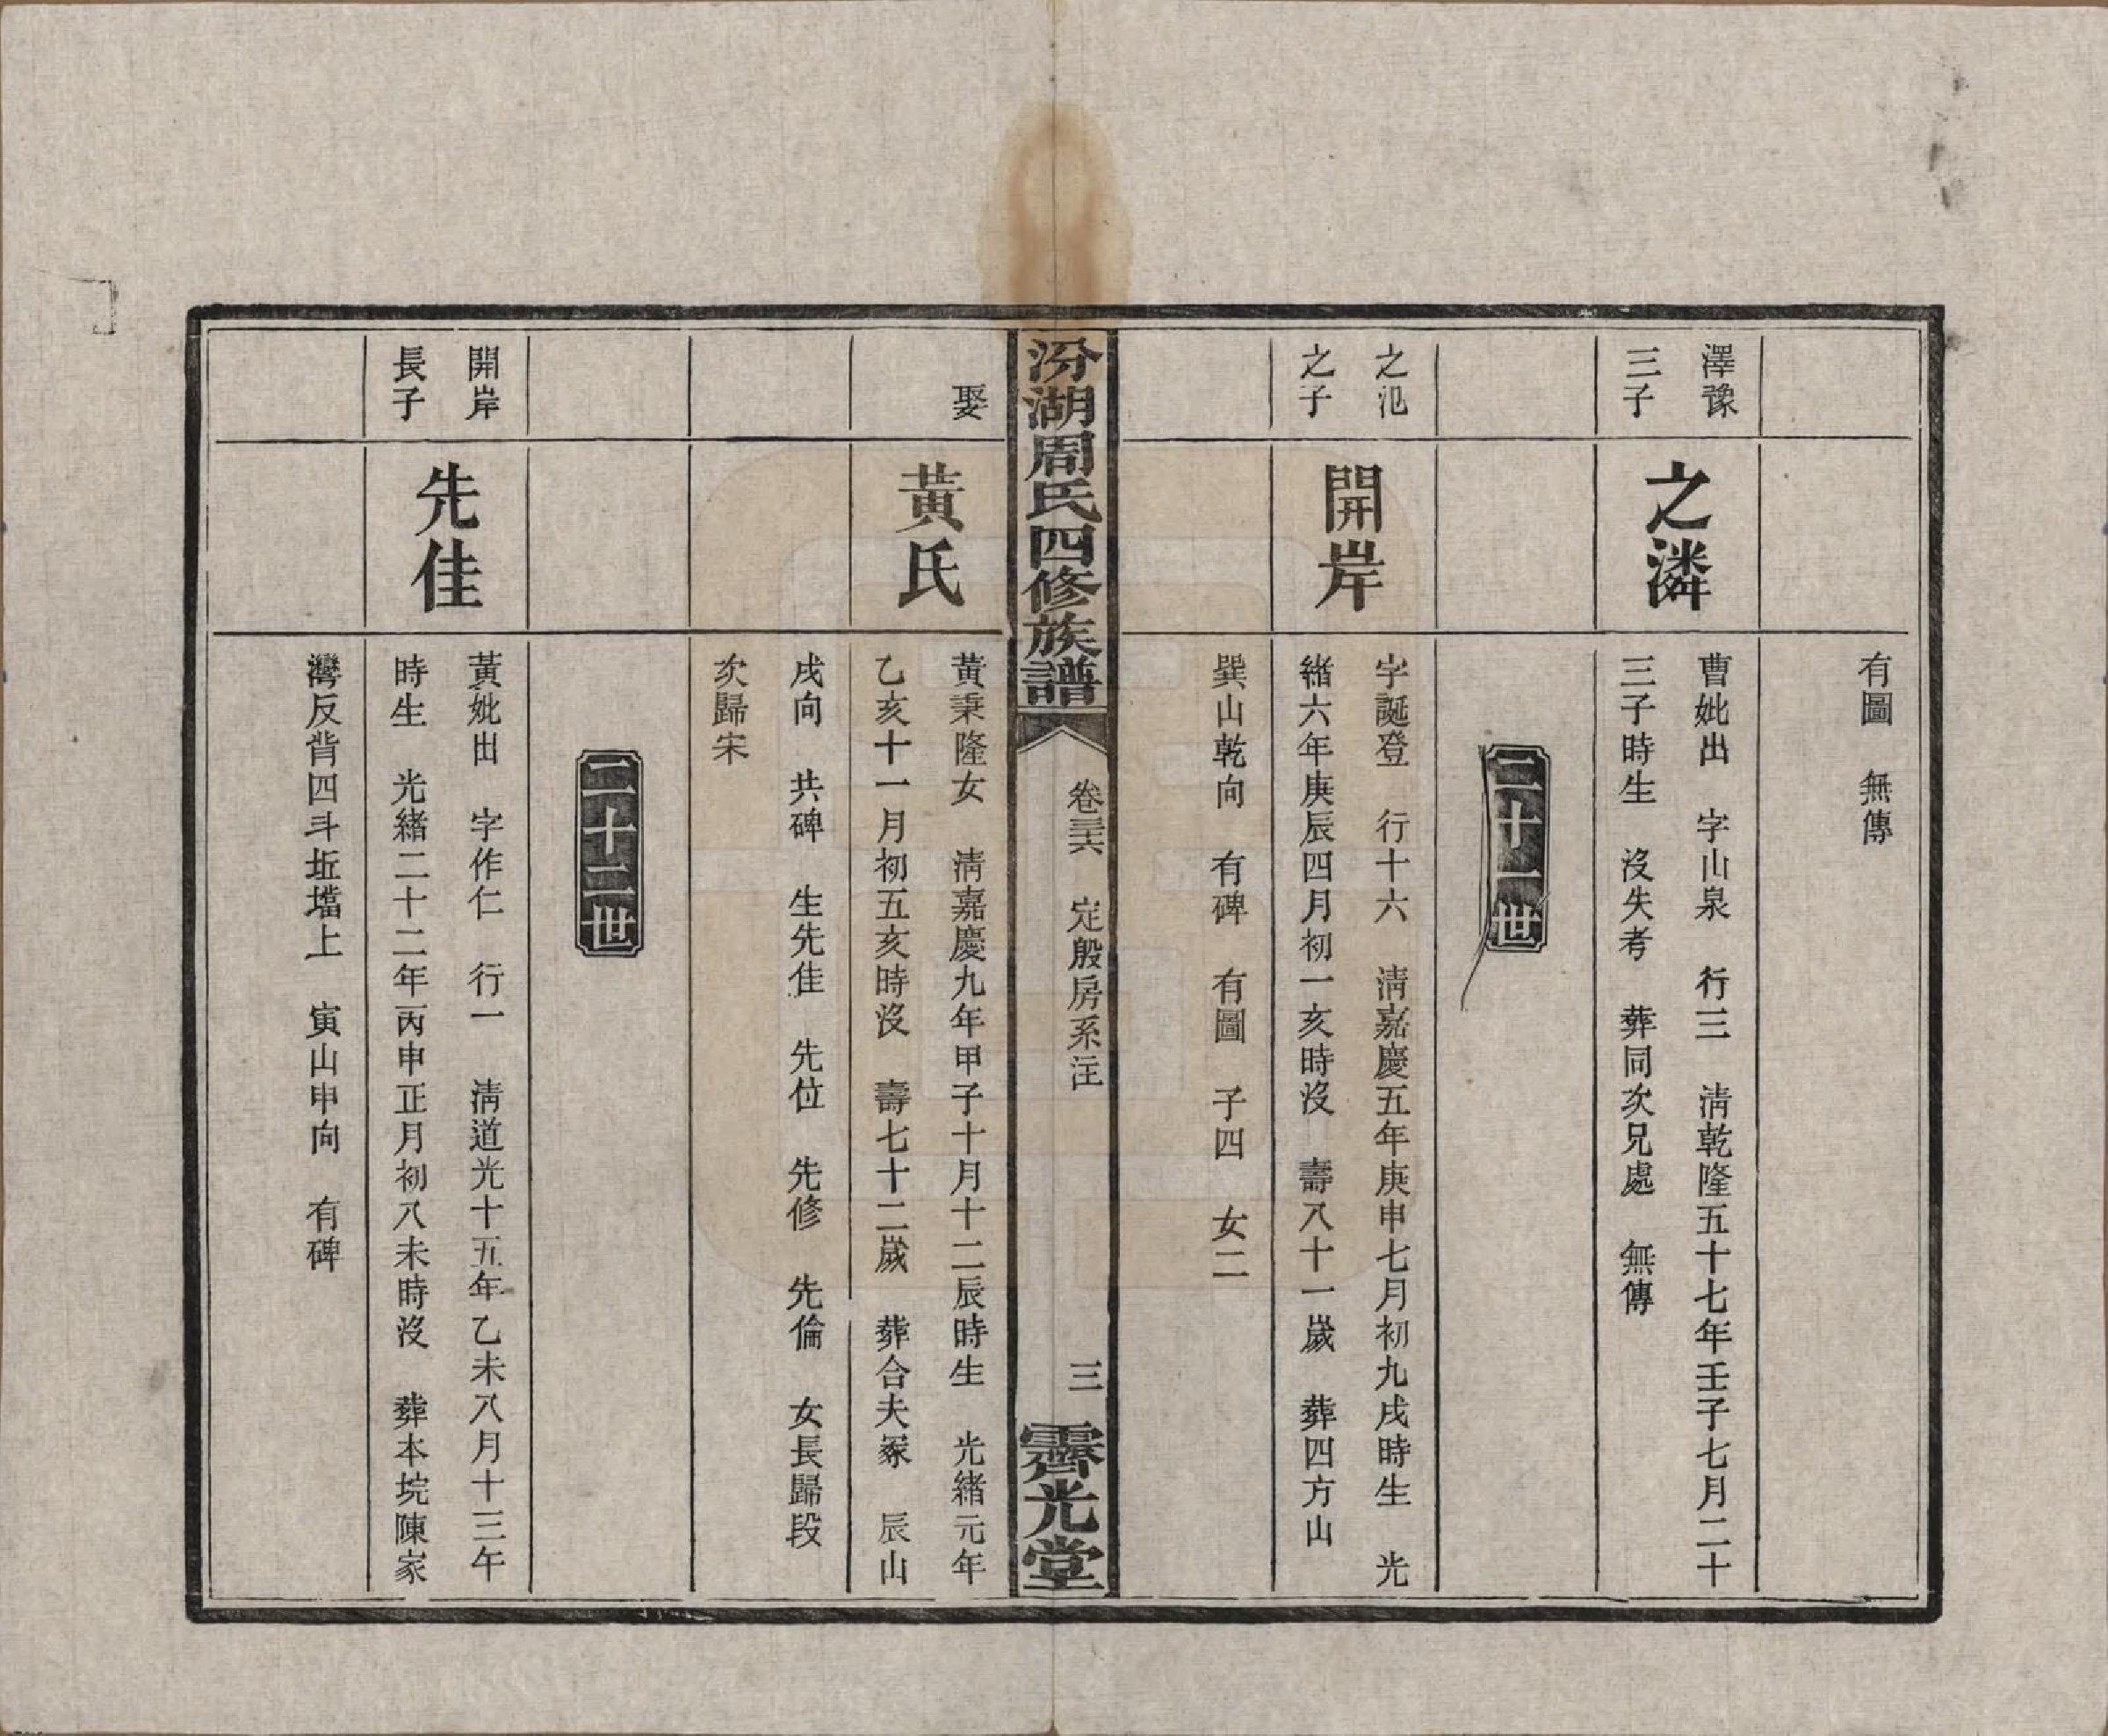 有圖　無傳
澤豫
三子
之潾
曹妣出　字山泉　行三　淸乾隆五十七年壬子七月二十
三子時生　沒失考　葬同次兄處　無傳
二十一世
之氾
之子
開岸
字誕登　行十六　淸嘉慶五年庚申七月初九戌時生　光
緒六年庚辰四月初一亥時沒　壽八十一歲　葬四方山
巽山乾向　有碑　有圖　子四　女二
汾湖周氏四修族譜
卷三六　定殷房系注
三
霽光堂
娶
黃氏
黃秉隆女　淸嘉慶九年甲子十月十二辰時生　光緒元年
乙亥十一月初五亥時沒　壽七十二歲　葬合夫冢　辰山
戌向　共碑　生先佳　先位　先修　先倫　女長歸段
次歸宋
二十二世
開岸
長子
先佳
黃妣出　字作仁　行一　淸道光十五年乙未八月十三午
時生　光緒二十二年丙申正月初八未時沒　葬本境陳家
灣反背四斗坵壋上　寅山申向　有碑